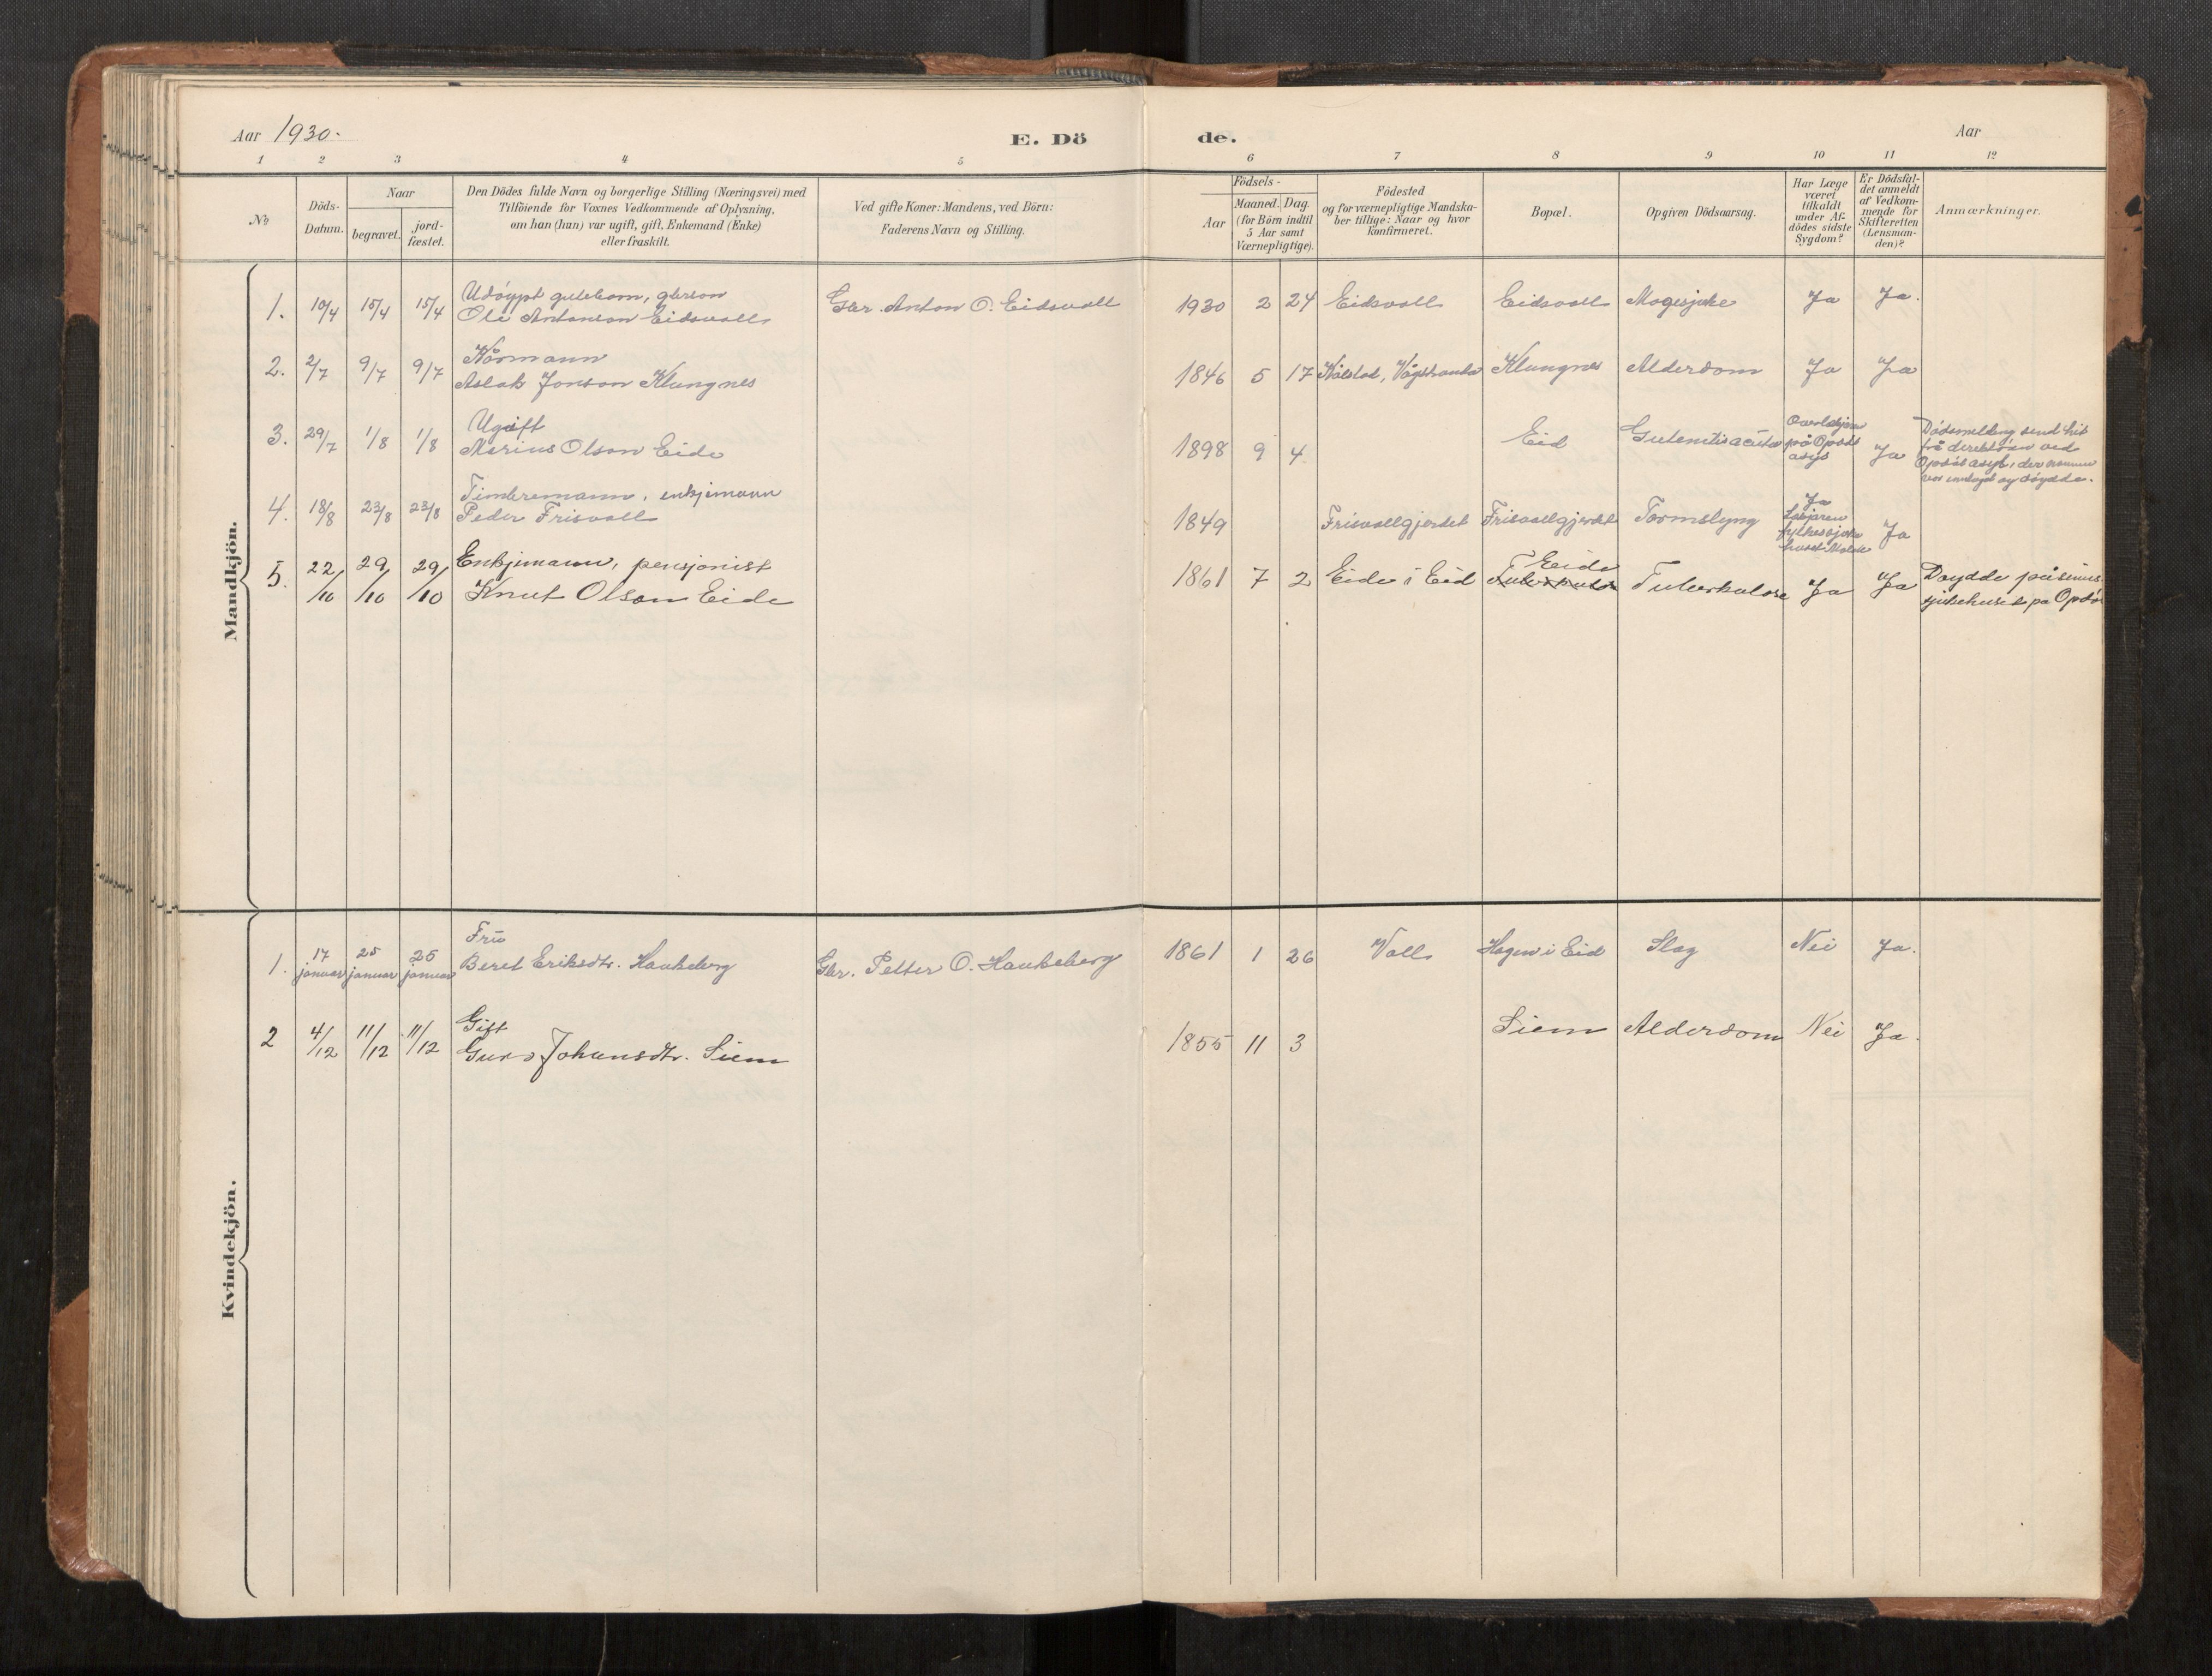 Aar 1930.
E. Dö
de.
Aar
1 2 3 4 5 6 7 8 9 10 11 12
No
Döds-
Datum.
Naar
begravet.
jord-
fæstet.
Den Dödes fulde Navn og borgerlige Stilling (Næringsvei) med
Tilföiende for Voxnes Vedkommende af Oplysning,
om han (hun) var ugift, gift, Enkemand (Enke)
eller fraskilt.
Ved gifte Koner: Mandens, ved Börn:
Faderens Navn og Stilling.
Födsels-
Aar
Maaned. Dag
(for Börn indtil
5 Aar samt
Værnepligtige).
Födested
og for værnepligtige Mandska-
ber tillige: Naar og hvor
Konfirmeret.
Bopæl.
Opgiven Dödsaarsag.
Har Læge
været
tilkaldt
under Af-
dödes sidste
Sygdom?
Er Dödsfal-
det anmeldt
af Vedkom-
mende for
Skifteretten
(Lensman-
den)?
Anmærkninger.
Mandkjön.
1. 10/4 15/4 15/4
Udöypt gutebarn,
Ole Antonson Eidsvoll
Gbr. Anton O. Eidsvoll
1930 2 24 Eidsvoll Eidsvoll Magesjuke Ja Ja.
2. 2/7 9/7 9/7
Kårmann
Aslak Jonson Klungnes
1846 5 17 Kålstad, Vågstranda Klungnes Alderdom Ja Ja
3. 29/7 1/8 1/8
Ugift
Marius Olson Eide
1898 9 4 Eid acuta
på Opdöl
asyl
Ja
Dödsmelding send hit
frå direktören ved
Opdöl asyl, der mannen
var innlagd og döydde.
4. 18/8 23/8 23/8
Timbremann, enkjemann
Peder Frisvoll
1849 Frisvollgjerdet Frisvollgjerdet Tarmslyng
Ja
fylkessjuke
huset Molde
Ja
5. 22/10 29/10 29/10
Enkjemann, pensjonist
Knut Olson Eide
1861 7 2 Eide i Eid Eide Tuberkulose Ja Ja
Döydde på sinns-
sjukehuset på Opdöl
Kvindekjön.
1. 17 januar 25 januar 25 januar
Frú
Beret Eriksdtr. Haukeberg
Gbr. Petter O. Haukeberg
1861 1 26 Voll Hagen i Eid Slag Nei Ja.
2 4/12 11/12 11/12
Gift
Guro Johansdtr. Siem
1855 11 3 Siem Alderdom Nei Ja.